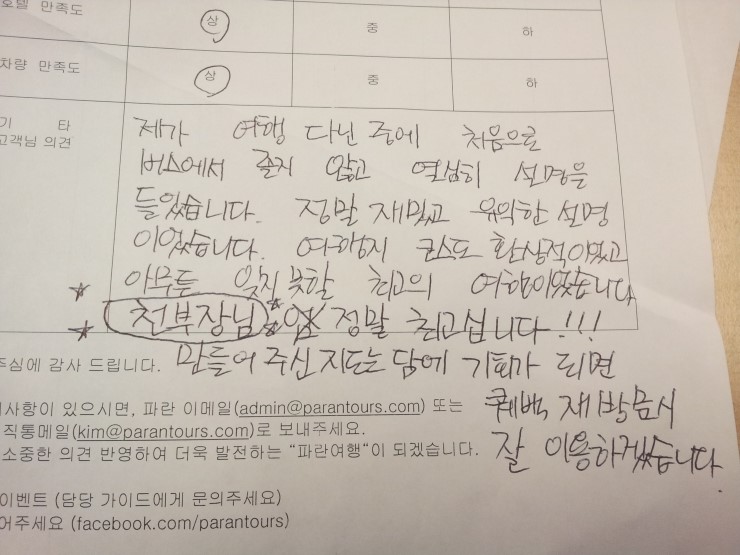 호텔 만족도 상 중 하
차량 만족도 상 중 하
기 타
고객님 의견
제가 여행 다닌 중에 처음으로
버스에서 졸지 않고 열심히 설명을
들었습니다. 정말 재밌고 유익한 설명
이었습니다. 여행지 코스도 환상적이었고
아무튼 잊지 못할 최고의 여행이었습니다
천부장님 정말 최고십니다!!!
주심에 감사 드립니다. 만들어 주신 지도는 담에 기회가 되면
퀘백 재방문시
잘 이용하겠습니다.
사항이 있으시면, 파란 이메일(admin@parantours.com) 또는
직통메일(kim@parantours.com)로 보내주세요.
소중한 의견 반영하여 더욱 발전하는 “파란여행“이 되겠습니다.
이벤트 (담당 가이드에게 문의주세요)
어주세요 (facebook.com/parantours)